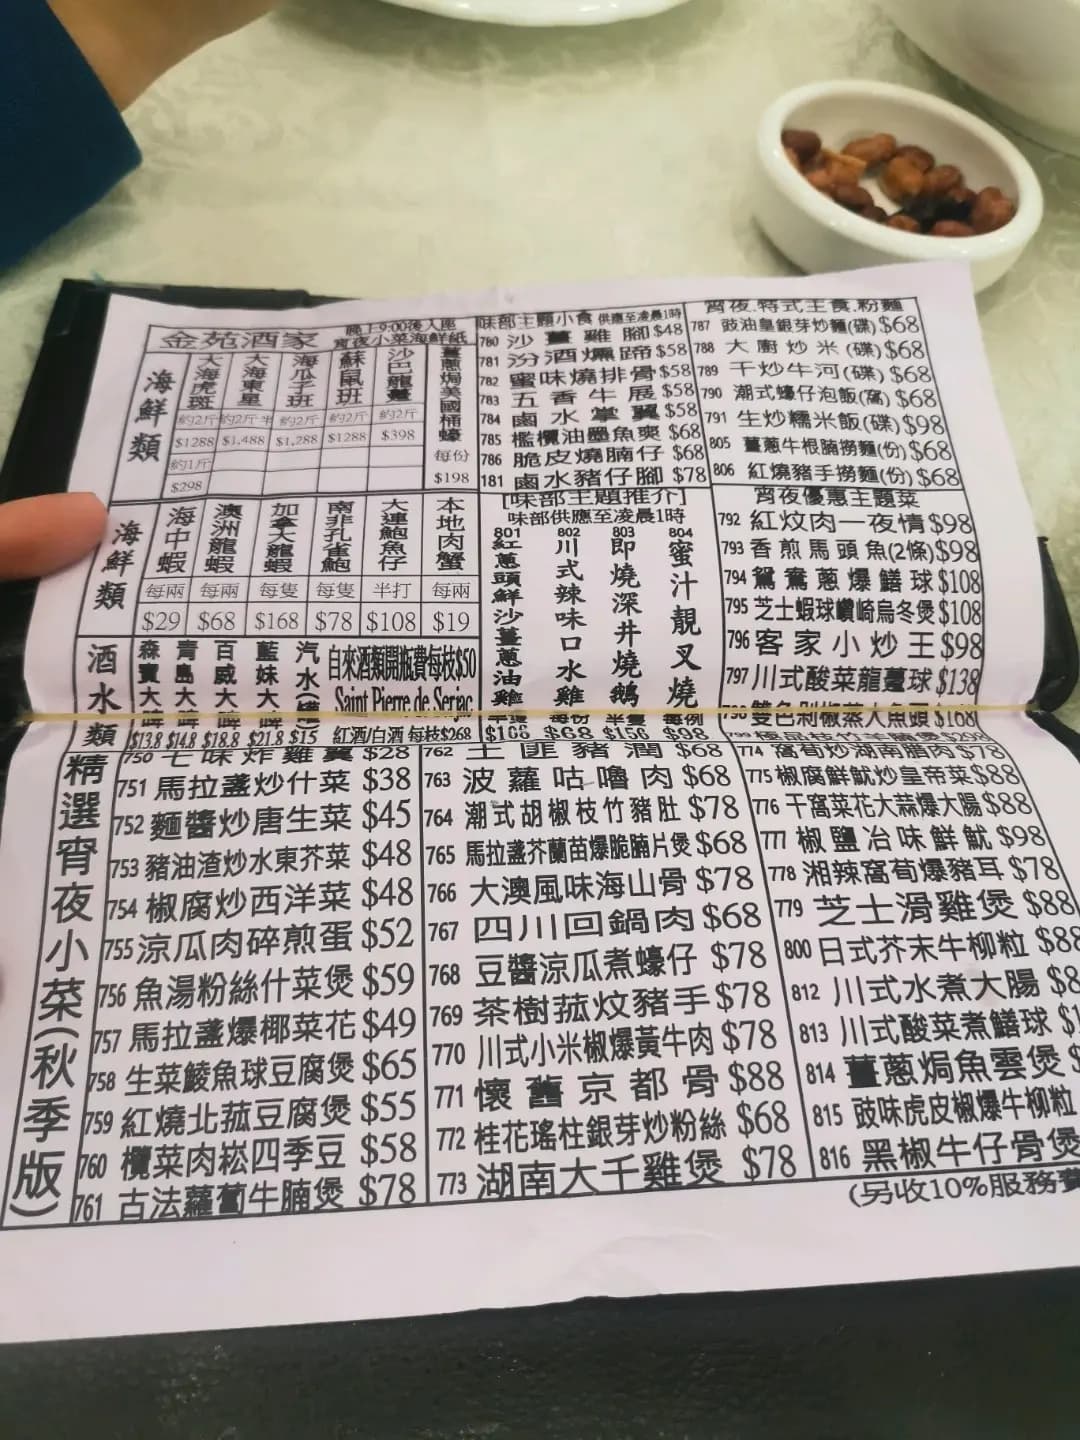 金苑酒家
晚上9:00後入座
宵夜小菜海鮮紙
海鮮類
大海虎斑 約2斤 $1288 約1斤 $298
大海東星 約2斤半 $1,488
海瓜子班 約2斤 $1,288
蘇鼠班 約2斤 $1288
沙巴龍躉 約2斤 $398
薑蔥焗美國桶蠔 每份 $198
海鮮類
海中蝦 每兩 $29
澳洲龍蝦 每兩 $68
加拿大龍蝦 每隻 $168
南非孔雀鮑 每隻 $78
大連鮑魚仔 半打 $108
本地肉蟹 每兩 $19
酒水類
森寶大啤 $13.8
青島大啤 $14.8
百威大啤 $18.8
藍妹大啤 $21.8
汽水(罐) $15
自來酒類開瓶費每枝$50
Saint Pierre de Serjac
紅酒/白酒 每枝$268
味部主題小食 供應至凌晨1時
780 沙薑雞腳 $48
781 汾酒燻蹄 $58
782 蜜味燒排骨 $58
783 五香牛展 $58
784 鹵水掌翼 $58
785 欖欖油墨魚爽 $68
786 脆皮燒腩仔 $68
181 鹵水豬仔腳 $78
[味部主題推介]
味部供應至凌晨1時
801 紅蔥頭鮮沙薑蔥油雞 半隻 $166
802 川式辣味口水雞 每份 $68
803 即燒深井燒鵝 半隻 $156
804 蜜汁靚叉燒 每例 $98
宵夜.特式主食.粉麵
787 豉油皇銀芽炒麵(碟) $68
788 大廚炒米(碟) $68
789 干炒牛河(碟) $68
790 潮式蠔仔泡飯(窩) $68
791 生炒糯米飯(碟) $98
805 薑蔥牛根腩撈麵(份) $68
806 紅燒豬手撈麵(份) $68
宵夜優惠主題菜
792 紅炆肉一夜情 $98
793 香煎馬頭魚(2條) $98
794 鴛鴦蔥爆鱔球 $108
795 芝士蝦球巉崎烏冬煲 $108
796 客家小炒王 $98
797 川式酸菜龍躉球 $138
798 雙色剁椒蒸大魚頭 $168
精選宵夜小菜(秋季版)
750 七味炸雞翼 $28
751 馬拉盞炒什菜 $38
752 麵醬炒唐生菜 $45
753 豬油渣炒水東芥菜 $48
754 椒腐炒西洋菜 $48
755 涼瓜肉碎煎蛋 $52
756 魚湯粉絲什菜煲 $59
757 馬拉盞爆椰菜花 $49
758 生菜鯪魚球豆腐煲 $65
759 紅燒北菰豆腐煲 $55
760 欖菜肉崧四季豆 $58
761 古法蘿蔔牛腩煲 $78
762 土匪豬潤 $68
763 波蘿咕嚕肉 $68
764 潮式胡椒枝竹豬肚 $78
765 馬拉盞芥蘭苗爆脆腩片煲 $68
766 大澳風味海山骨 $78
767 四川回鍋肉 $68
768 豆醬涼瓜煮蠔仔 $78
769 茶樹菰炆豬手 $78
770 川式小米椒爆黃牛肉 $78
771 懷舊京都骨 $88
772 桂花瑤柱銀芽炒粉絲 $68
773 湖南大千雞煲 $78
774 窩筍炒湖南腊肉 $78
775 椒腐鮮魷炒皇帝菜 $88
776 干窩菜花大蒜爆大腸 $88
777 椒鹽冶味鮮魷 $98
778 湘辣窩荀爆豬耳 $78
779 芝士滑雞煲 $88
800 日式芥末牛柳粒 $88
812 川式水煮大腸 $8
813 川式酸菜煮鱔球 $1
814 薑蔥焗魚雲煲 $
815 豉味虎皮椒爆牛柳粒
816 黑椒牛仔骨煲
(另收10%服務費